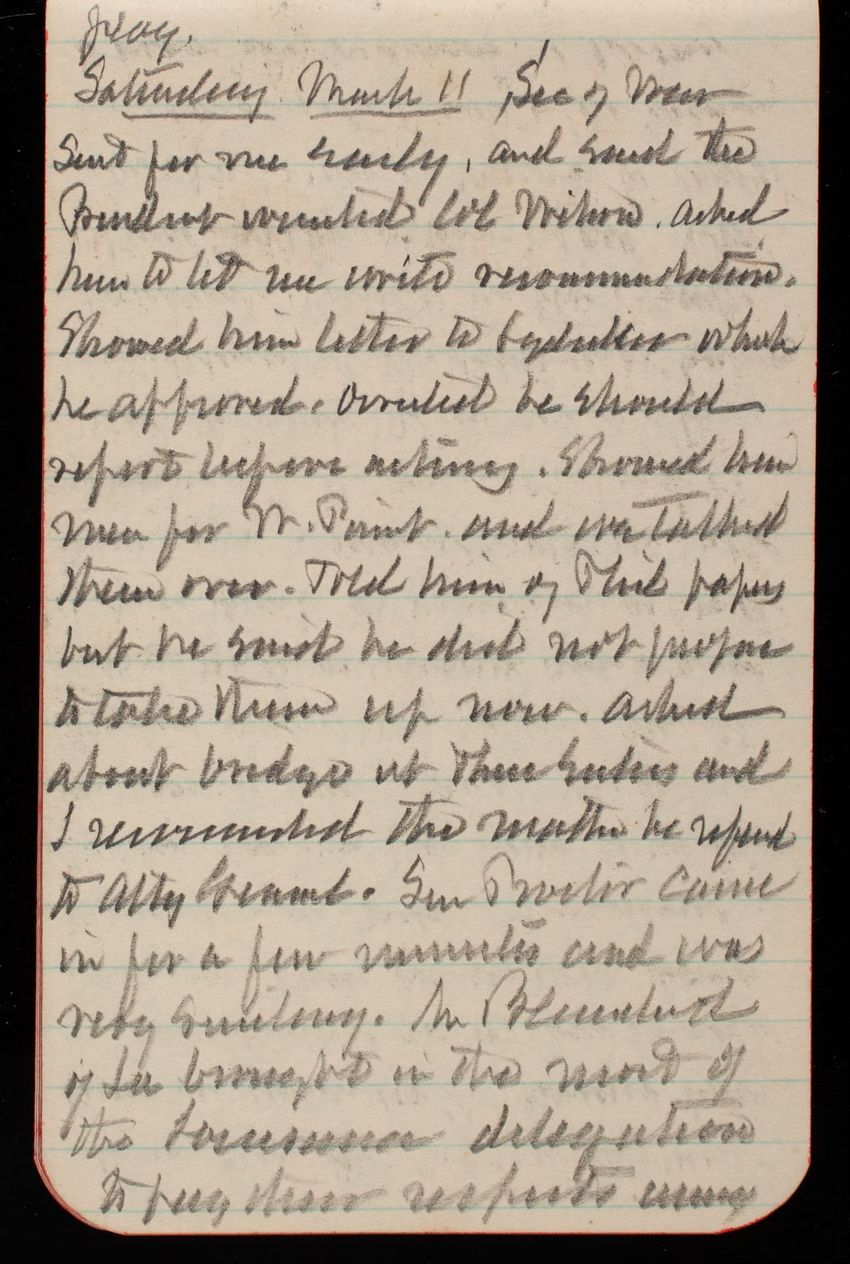 play.
Saturday March 11, Sec of War
sent for me early, and said the
President wanted Col Wilson. asked
him to let me write recommendation.
Showed him letter to which
he approved. wanted he should
report before acting. Showed him
men for W. Point. and we talked
them over. Told him of Phil papers
but he said he did not propose
to take them up now. asked
about bridge at Three Sisters and
I recommended the matter be referred
to Atty General. Sen Proctor came
in for a few minutes and was
very smiling. Mr Blanchard
of La brought in the most of
the Louisiana delegation
to pay their respects